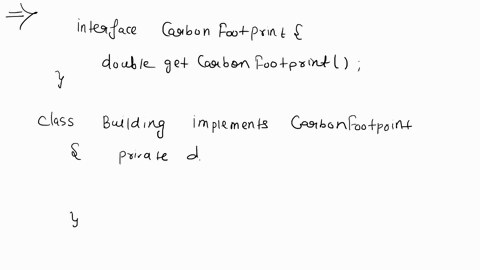 ⇒ interface Carbon Footprint {
double get Carbon Footprint();
}
class Building implements CarbonFootpoint
{ private d
}